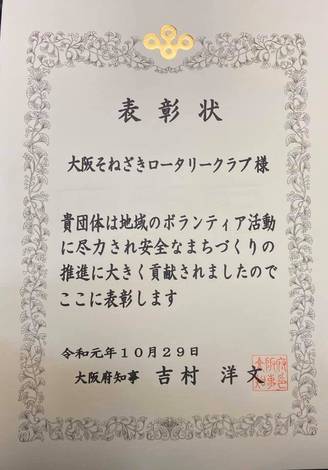 表彰状
大阪そねざきロータリークラブ様
貴団体は地域のボランティア活動
に尽力され安全なまちづくりの
推進に大きく貢献されましたので
ここに表彰します
令和元年10月29日
大阪府知事 吉村 洋文